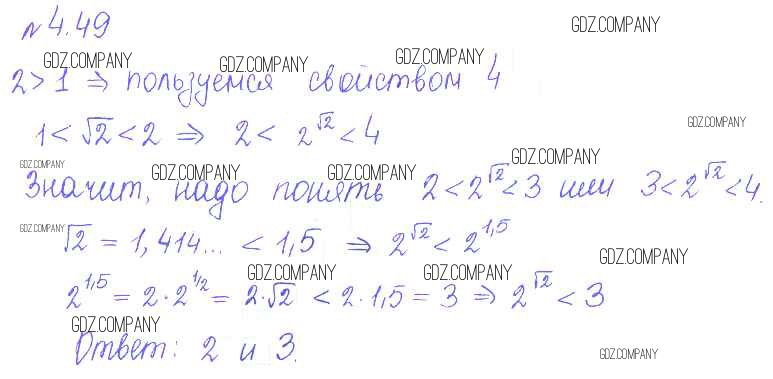 №4.49 GDZ.COMPANY
GDZ.COMPANY GDZ.COMPANY GDZ.COMPANY
2 > 1 ⇒ пользуемся свойством 4
1 < √2 < 2 ⇒ 2 < 2^√2 < 4 GDZ.COMPANY
GDZ.COMPANY GDZ.COMPANY GDZ.COMPANY GDZ.COMPANY
Значит, надо понять 2 < 2^√2 < 3 или 3 < 2^√2 < 4.
GDZ.COMPANY √2 = 1,414... < 1,5 ⇒ 2^√2 < 2^1,5
GDZ.COMPANY GDZ.COMPANY GDZ.COMPANY
2^1,5 = 2·2^1/2 = 2·√2 < 2·1,5 = 3 ⇒ 2^√2 < 3
GDZ.COMPANY
Ответ: 2 и 3. GDZ.COMPANY